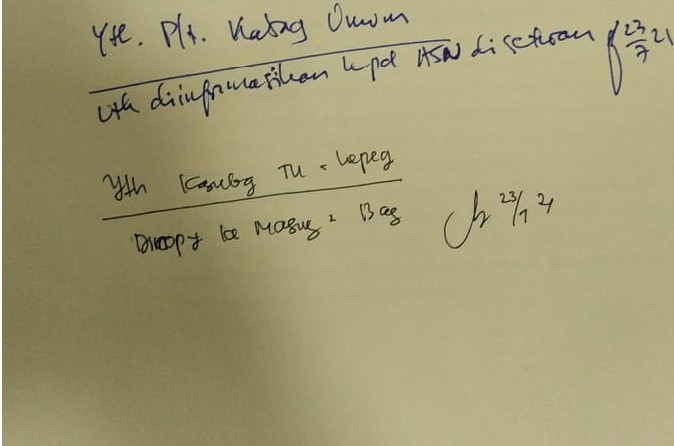 Yth. Plt. Kabag Umum
utk diinformasikan kepd ASN di Setwan 23/7 21
Yth Kasubg TU - Kepeg
Dicopy ke Masing2 Bag 23/7 21